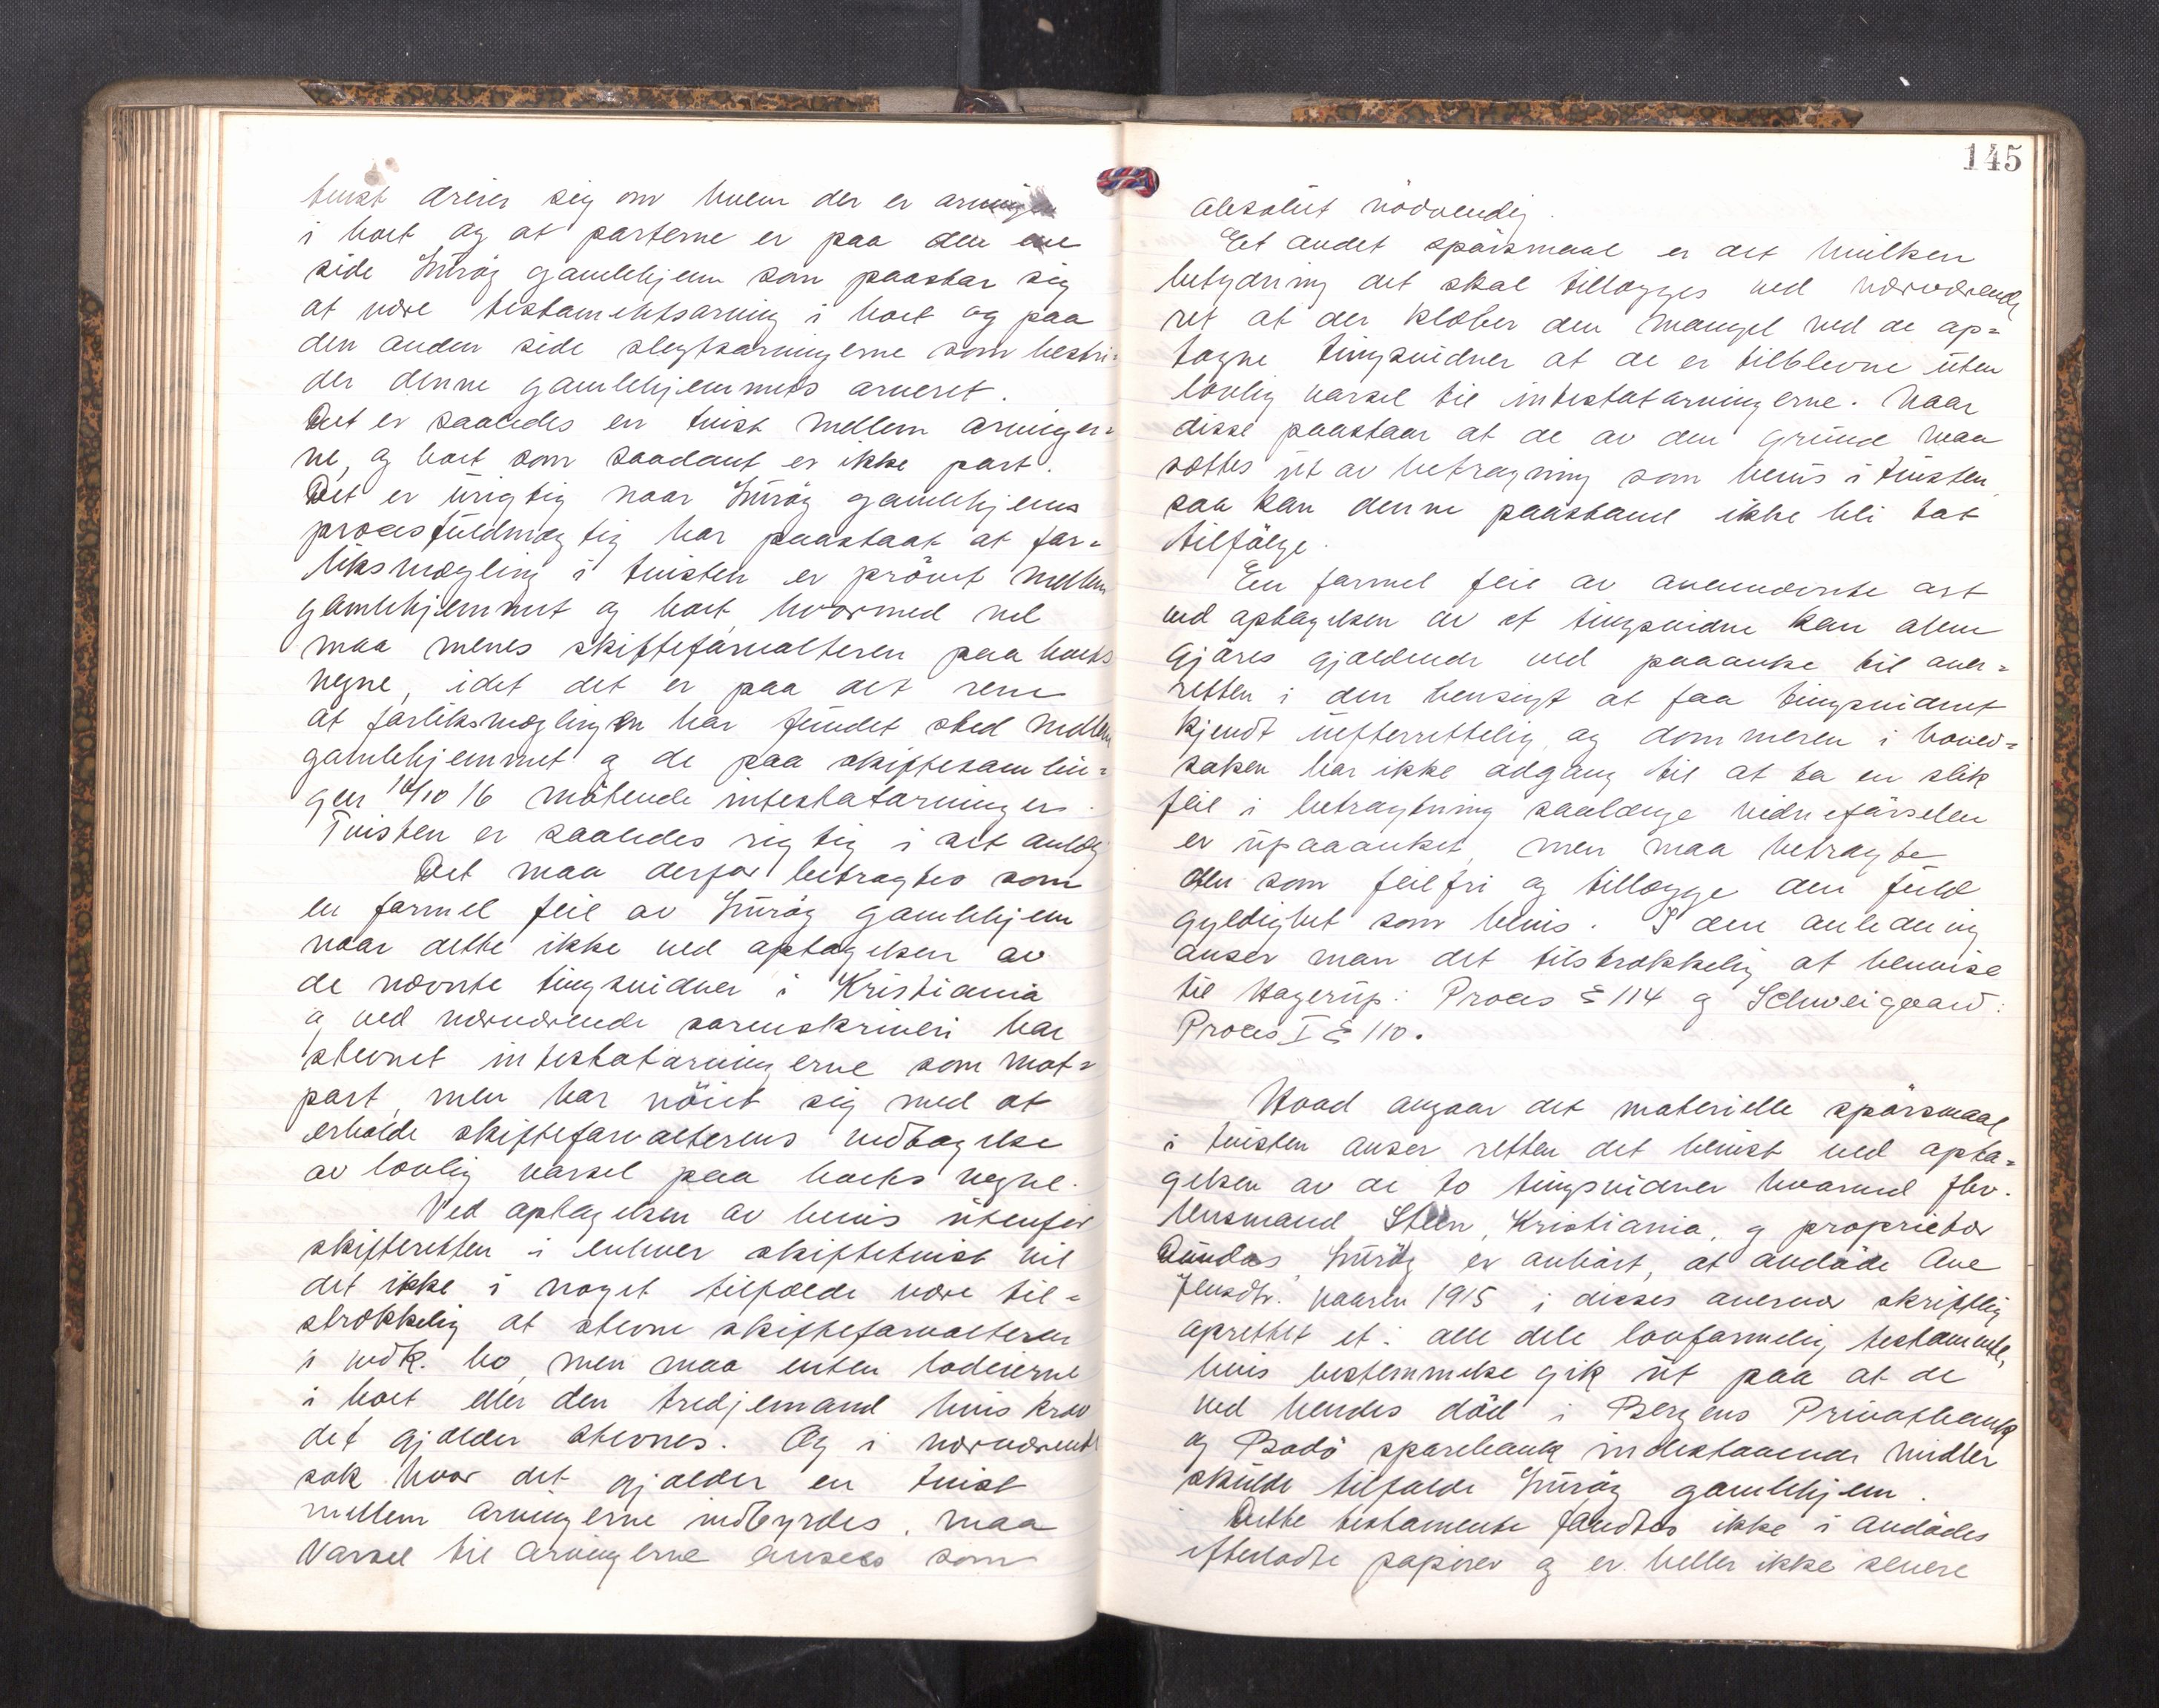 tvist dreier sig om hvem der er arvinger
i boet og at parterne er paa den ene
side Lurøy gamlehjem som paastar sig
at være testamentsarving i boet og paa
den anden side slegtsarvingerne som bestri-
der denne gamlehjemmets arveret.
Det er saaledes en tvist mellem arvinger-
ne, og boet som saadant er ikke part.
Det er urigtig naar Lurøy gamlehjems
procesfuldmægtig har paastaat at for-
liksmægling i tvisten er prøvet mellem
gamlehjemmet og boet, hvormed vel
maa menes skifteforvalteren paa boets
vegne, idet det er paa det rene
at forliksmæglingen har fundet sted mellem
gamlehjemmet og de paa skiftesamlin-
gen 16/10 16 møtende intestatarvinger.
Tvisten er saaledes rigtig i alt anlagt
Det maa derfor betragtes som
en formel feil av Lurøy gamlehjem
naar dette ikke ved optagelsen av
de nævnte tingsvidner i Kristiania
og ved nærværende sorenskriveri har
stevnet intestatarvingerne som mot-
part, men har nøiet sig med at
erholde skifteforvalterens vedtagelse
av lovlig varsel paa boets vegne.
Ved optagelsen av bevis utenfor
skifteretten i enhver skiftetvist vil
det ikke i noget tilfælde være til-
strækkelig at stevne skifteforvalteren
i vedk. bo, men maa enten lodeierne
i boet eller den tredjemand hvis krav
det gjælder stevnes. Og i nærværende
sak hvor det gjælder en tvist
mellem arvingerne indbyrdes, maa
varsel til arvingerne ansees som
145
absolut nødvendig.
Et andet spørsmaal er det hvilken
betydning det skal tillægges ved nærværende
ret at der klæber den mangel ved de op-
tagne tingsvidner at de er tilblevne uten
lovlig varsel til intestatarvingerne. Naar
disse paastaar at de av den grund maa
sættes ut av betragtning som bevis i tvisten,
saa kan denne paastand ikke bli tat
tilfølge.
En formel feil av avennævnte art
ved optagelsen av et tingsvidne kan alene
gjøres gjældende ved paaanke til over-
retten i den hensigt at faa tingsvidnet
kjendt uefterrettelig, og dommeren i hoved-
saken har ikke adgang til at ta en slik
feil i betragtning saalænge vidneførselen
er upaaanket, men maa betragte
den som feilfri og tillægge den fuld
gyldighet som bevis. I den anledning
anser man det tilstrækkelig at henvise
til Hagerup: Proces § 114 og Schweigaard:
Proces I § 110.
Hvad angaar det materielle spørsmaal
i tvisten anser retten det bevist ved opta-
gelsen av de to tingsvidner hvorved fhv.
lensmand Steen, Kristiania, og proprietær
Dundas, Lurøy er avhørt, at avdøde Ane
Jensdtr. vaaren 1915 i disses overvær skriftlig
oprettet et i alle dele lovformelig testamente,
hvis bestemmelse gik ut paa at de
ved hendes død i Bergens Privatbank
og Bodø sparebank indestaaende midler
skulde tilfalde Lurøy gamlehjem.
Dette testamente fandtes ikke i avdødes
efterladte papirer og er heller ikke senere